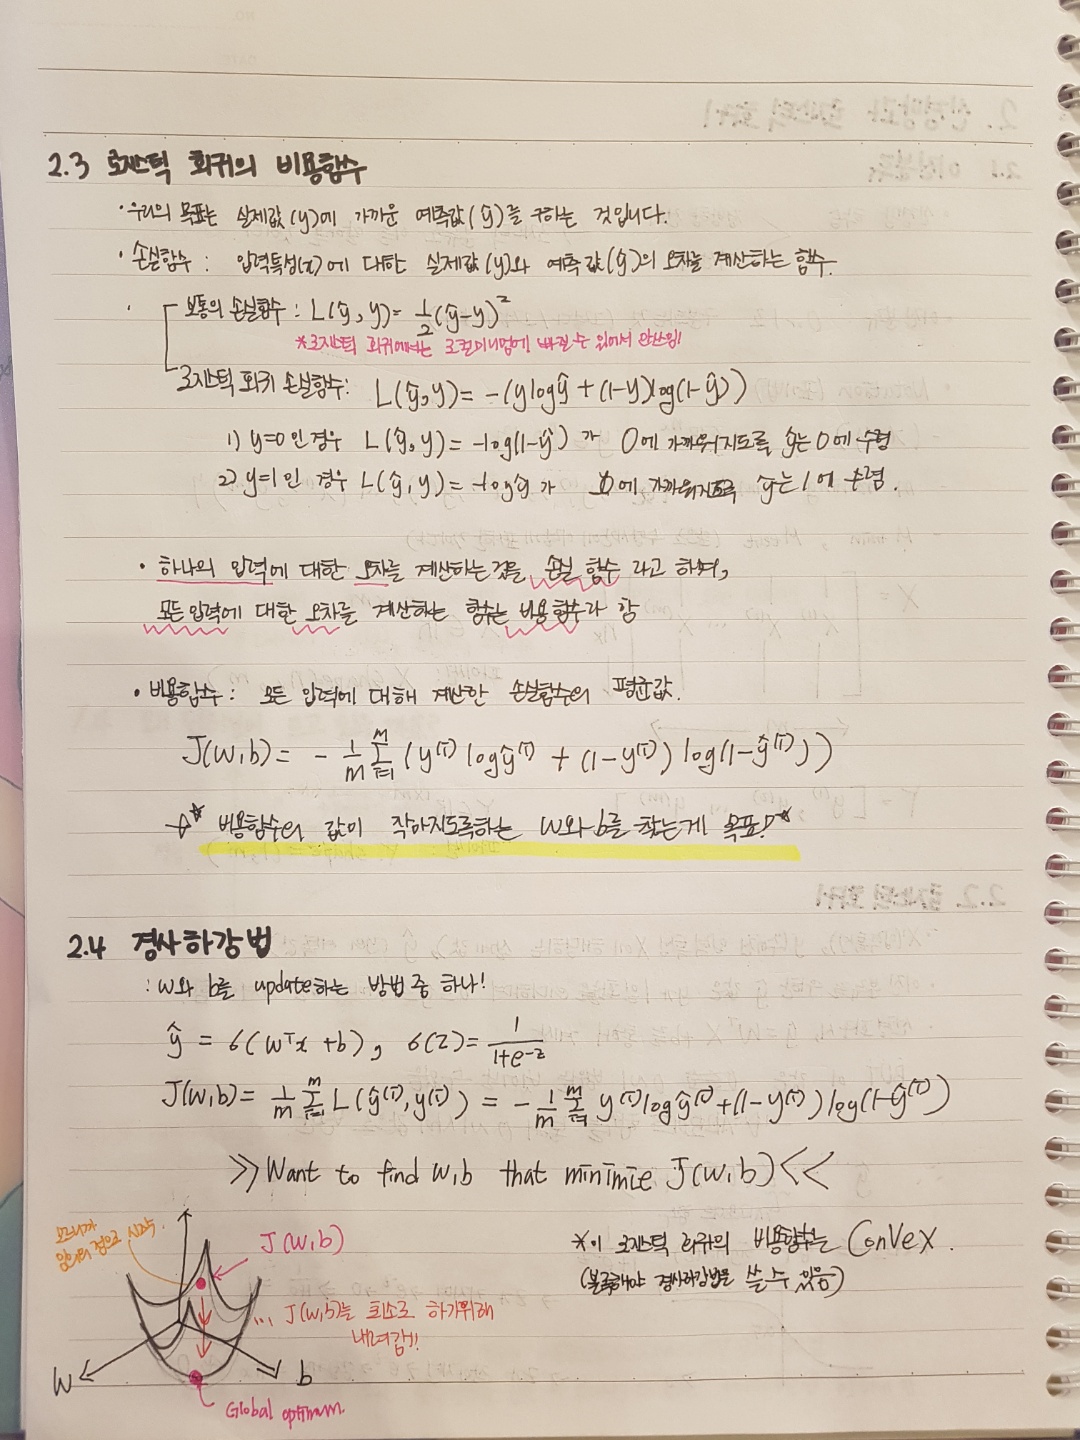 2.3 로지스틱 회귀의 비용함수
· 우리의 목표는 실제값(y)에 가까운 예측값(ŷ)를 구하는 것입니다.
· 손실함수 : 입력특성(x)에 대한 실제값(y)와 예측값(ŷ)의 오차를 계산하는 함수.
보통의 손실함수 : L(ŷ, y) = ½(ŷ-y)²
*로지스틱 회귀에서는 로컬미니멈에 빠질수 있어서 안쓰임!
로지스틱 회귀 손실함수: L(ŷ,y) = -(ylogŷ + (1-y)log(1-ŷ))
1) y=0인 경우 L(ŷ,y) = -log(1-ŷ)가 0에 가까워지도록 ŷ는 0에 수렴
2) y=1인 경우 L(ŷ,y) = -logŷ가 0에 가까워지도록 ŷ는 1에 수렴.
· 하나의 입력에 대한 오차를 계산하는것을 손실 함수 라고 하며,
모든입력에 대한 오차를 계산하는 함수는 비용함수라 함
· 비용함수 : 모든 입력에 대해 계산한 손실함수의 평균값.
J(w,b) = - 1/m Σᵢ₌₁ᵐ (y⁽ⁱ⁾ log ŷ⁽ⁱ⁾ + (1-y⁽ⁱ⁾) log(1-ŷ⁽ⁱ⁾))
☆* 비용함수의 값이 작아지도록하는 w와 b를 찾는게 목표! *
2.4 경사하강법
: w와 b를 update하는 방법 중 하나!
ŷ = σ(wᵀx + b), σ(z) = 1/(1+e⁻ᶻ)
J(w,b) = 1/m Σᵢ₌₁ᵐ L(ŷ⁽ⁱ⁾, y⁽ⁱ⁾) = - 1/m Σᵢ₌₁ᵐ y⁽ⁱ⁾ log ŷ⁽ⁱ⁾ + (1-y⁽ⁱ⁾) log(1-ŷ⁽ⁱ⁾)
≫ Want to find w,b that minimie J(w,b) ≪
모르니까
임의의 점으로 시작.
J(w,b)
... J(w,b)는 최소로 하기위해
내려감!!
w
b
Global optimum.
*이 로지스틱 회귀의 비용함수는 Convex.
(볼록해야 경사하강법을 쓸 수 있음)